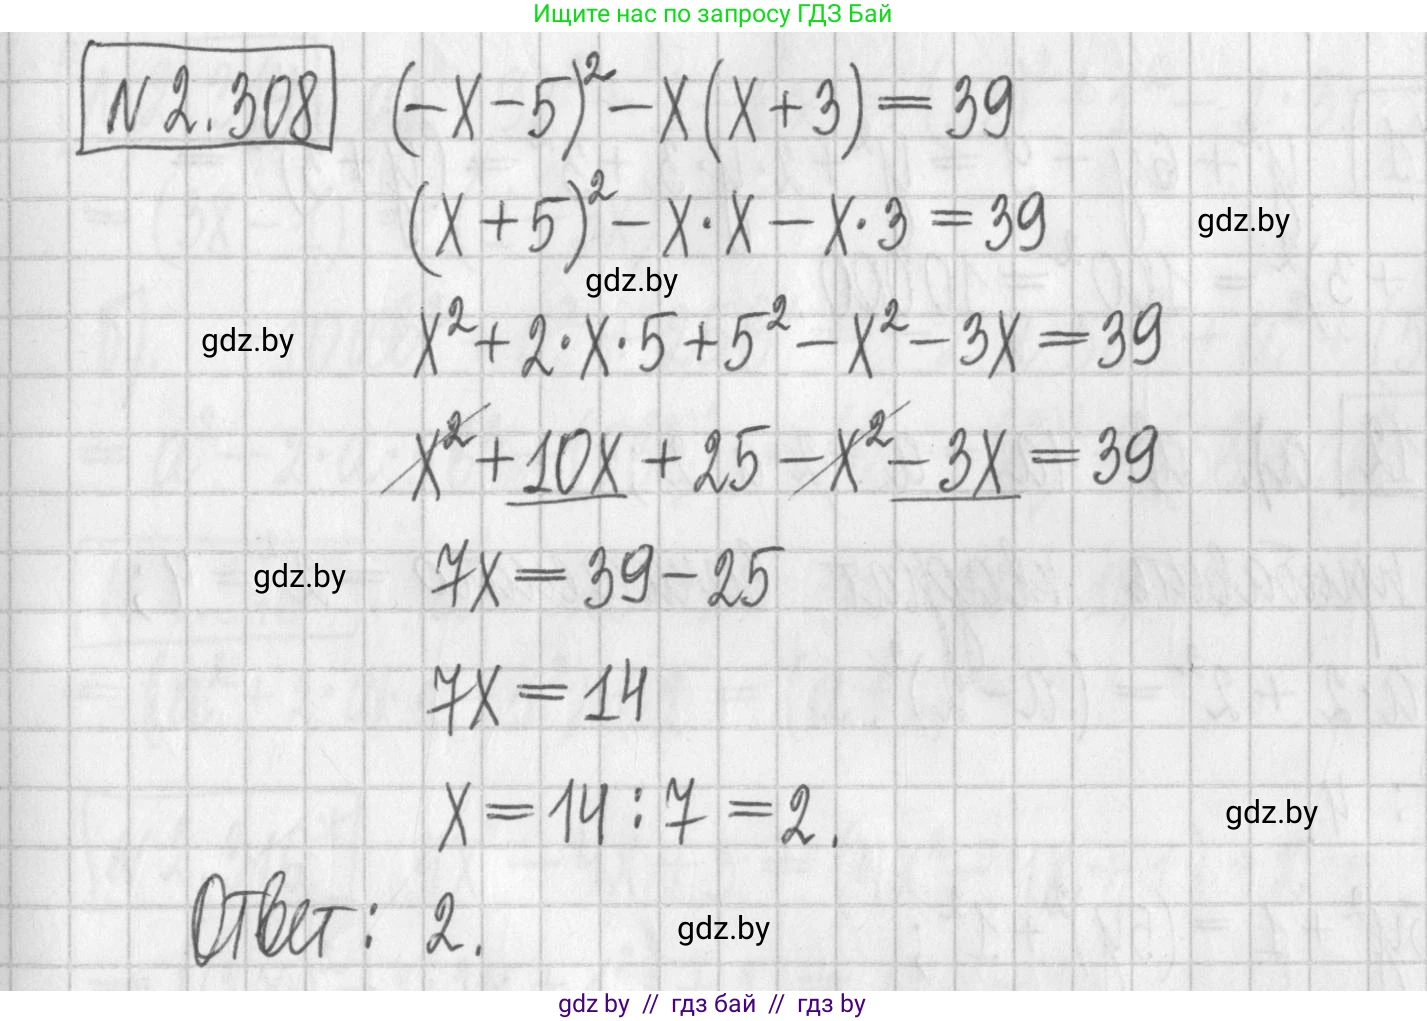 Ищите нас по запросу ГДЗ Бай
№ 2.308 (-x-5)² - x(x+3) = 39
(x+5)² - x·x - x·3 = 39
gdz.by
gdz.by
gdz.by
x² + 2·x·5 + 5² - x² - 3x = 39
x² + 10x + 25 - x² - 3x = 39
7x = 39 - 25
gdz.by
7x = 14
x = 14 : 7 = 2.
gdz.by
Ответ: 2.
gdz.by
gdz by // гдз бай // гдз by